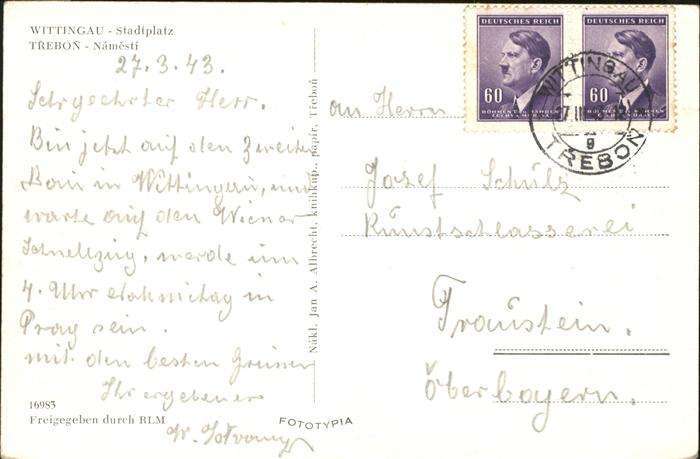 WITTINGAU - Stadtplatz
TŘEBOŇ - Náměstí
27. 3. 43.
Sehrgeehrter Herr.
Bin jetzt auf den Zweiten
Bau in Wittingau, und
warte auf den Wiener
Schnellzug, werde um
4. Uhr nachmittag in
Prag sein.
mit den besten Grüssen
Ihr ergebener
W.
16983
Freigegeben durch RLM
FOTOTYPIA
Nákl. Jan A. Albrecht, knihkup., papír, Třeboň
DEUTSCHES REICH
60
BÖHMEN U. MÄHREN
ČECHY A MORAVA
DEUTSCHES REICH
60
BÖHMEN U. MÄHREN
ČECHY A MORAVA
WITTINGAU
TŘEBOŇ
an Herrn
Josef Schülz
Kunstschlosserei
Traunstein.
Oberbayern.